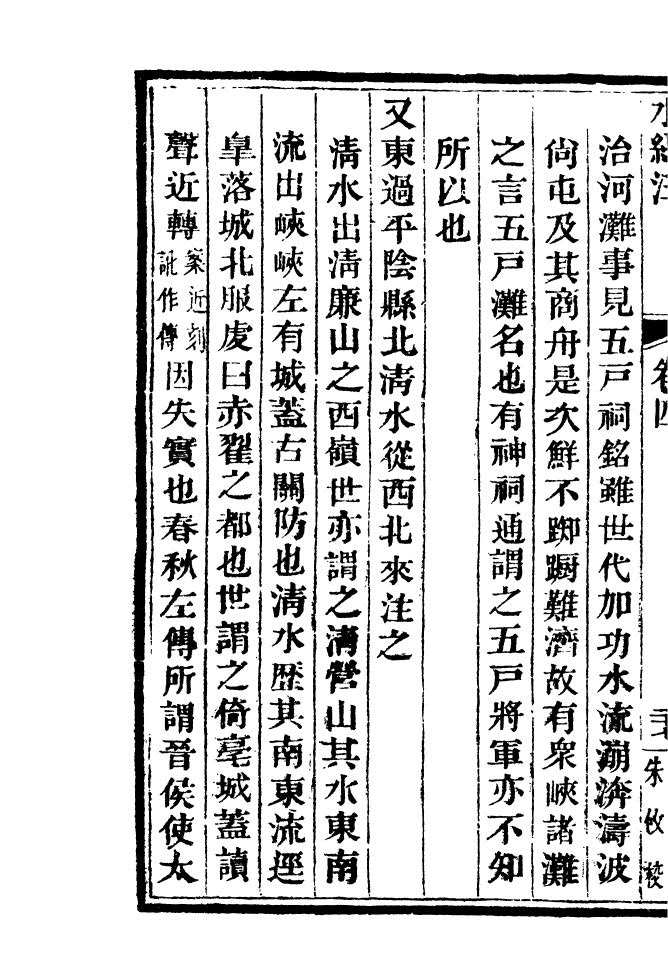 水經注 卷四 二十一 朱攸校
治河灘事見五戸祠銘雖世代加功水流漰濟濤波
尙屯及其商舟是次鮮不踟躕難濟故有衆峽諸灘
之言五戸灘名也有神祠通謂之五戸將軍亦不知
所以也
又東過平陰縣北淸水從西北來注之
淸水出淸廉山之西嶺世亦謂之淸營山其水東南
流出峽峽左有城蓋古關防也淸水歴其南東流逕
皐落城北服虔曰赤翟之都也世謂之倚亳城蓋讀
聲近轉案近刻訛作傳因失實也春秋左傳所謂晉侯使太